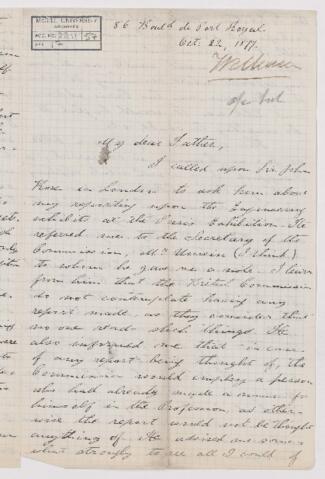 McGILL UNIVERSITY
ARCHIVES
ACC. NO.
86 Boul^d de Port Royal
Oct. 22, 1877.
My dear Father,
I called upon Sir John
in London to ask him about
my reporting upon the Engineering
exhibits at the Paris Exhibition. He
referred me to the Secretary of the
Commission, Mr. (I think)
to whom he gave me a note. I learn
from him that the British Commission
do not contemplate having any
report made, as they consider that
no one reads which things. He
also informed me that in case
of any report being thought of, the
Commission would employ a person
who had already made a name for
himself in the Profession, as other-
wise the report would not be thought
anything of. He advised me some-
what strongly to see all I could of